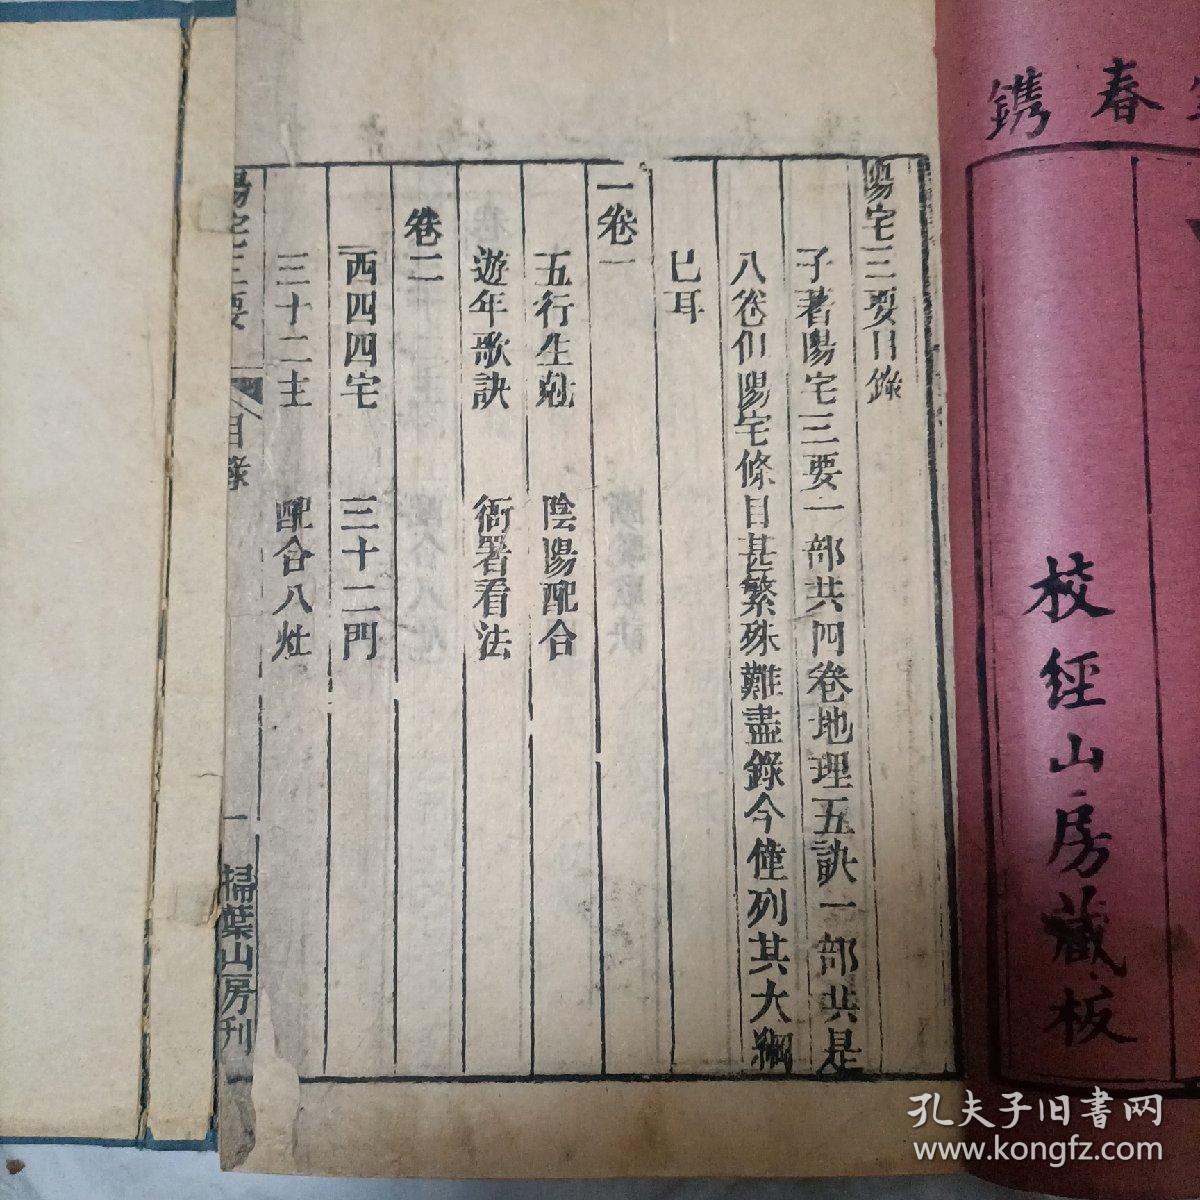 春鐫
校經山房藏板
陽宅三要目錄
子著陽宅三要一部共四卷地理五訣一部共是
八卷但陽宅條目甚繁殊難盡錄今僅列其大綱
已耳
一卷一
五行生尅 陰陽配合
遊年歌訣 衙署看法
卷二
西四四宅 三十二門
三十二主 配合八灶
陽宅三要 目錄 一 掃葉山房刊
孔夫子旧书网
www.kongfz.com